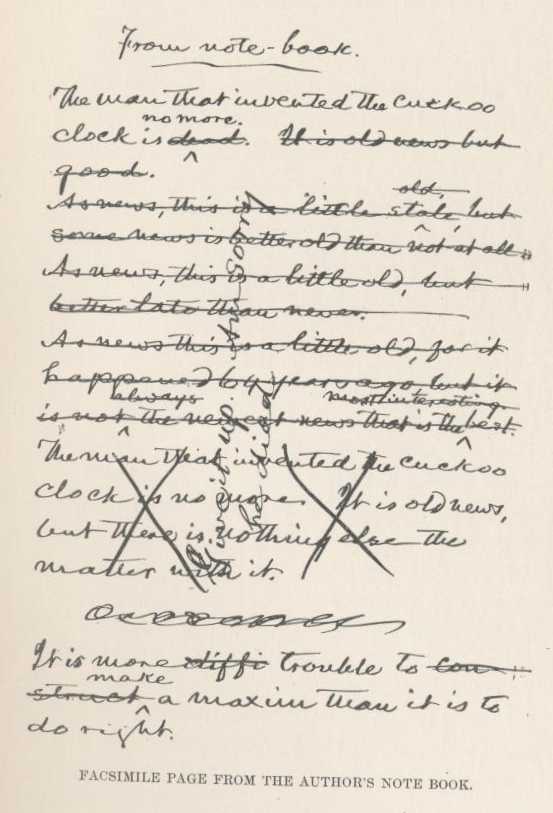 From note-book.
The man that invented the cuckoo
no more.
clock is dead. It is old news but
good.
old,
As news, this is a little stale, but
some news is better old than not at all.
As news, this is a little old, but
better late than never.
As news this is a little old, for it
happened 64 years ago, but it
always most interesting
is not the newest news that is the best.
The man that invented the cuckoo
clock is no more. It is old news,
but there is nothing else the
matter with it.
Give it up. Am sorry
he died
It is more diffi trouble to con-
make
struct a maxim than it is to
do right.
FACSIMILE PAGE FROM THE AUTHOR'S NOTE BOOK.